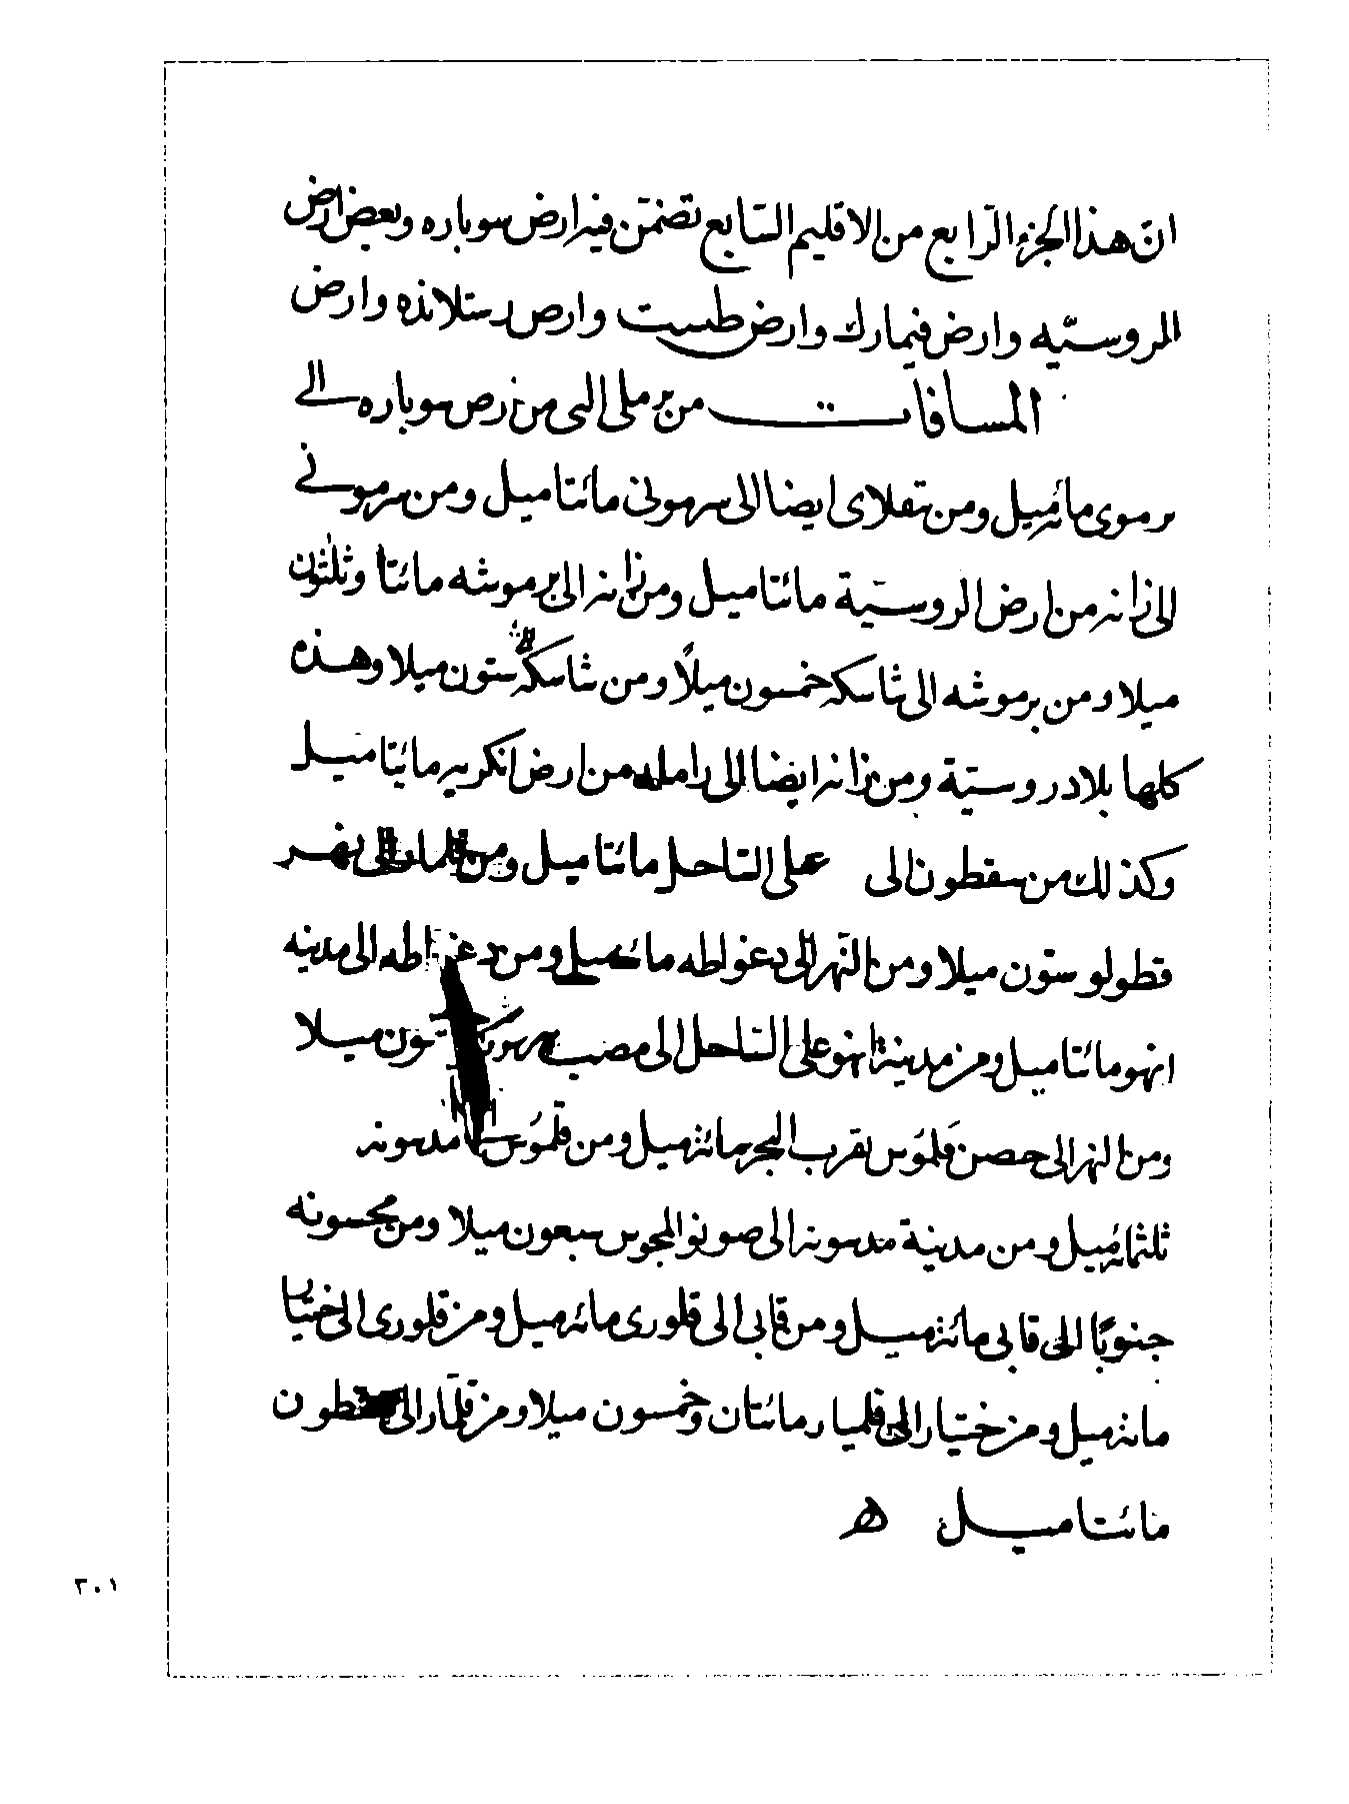 انّ هذا الجزء الرّابع من الاقليم السّابع تضمّن فيه ارض سوباره وبعض ارض
الروسيّه وارض فيمارك وارض طبست وارض رستلانده وارض
المسافات من برملى التى من ارض سوباره الى
برموى مائة ميل ومن تقلاى ايضا الى سرمونى مائتا ميل ومن سرمونى
الى زانه من ارض الروسيّة مائتا ميل ومن زانه الى برموشه مائتا وثلثون
ميلا ومن برموشه الى ثاسكه خمسون ميلًا ومن ثاسكه ستون ميلا وهذه
كلها بلاد روسيّة ومن زانه ايضا الى من ارض انكريه مائتا ميل
وكذلك من سقطون الى على السّاحل مائتا ميل ومن الى نهر
قطولو ستون ميلا ومن النّهر الى دغواطه مائة ميل ومن دغواطه الى مدينه
انهو مائتا ميل ومن مدينة انهو على السّاحل الى مصب ميلا
ومن النهر الى حصن فلمُوس بقرب البحر مائة ميل ومن فلمُوس الى مدسونه
ثلثمائة ميل ومن مدينة مدسونه الى صونو المجوس سبعون ميلا ومن
جنوبًا الى قابى مائة ميل ومن قابى الى قلورى مائة ميل ومن قلورى الى ختيار
مائة ميل ومن ختيار الى قلميار مائتان وخمسون ميلا ومن الى سقطون
مائتا ميل ه
٣٠١